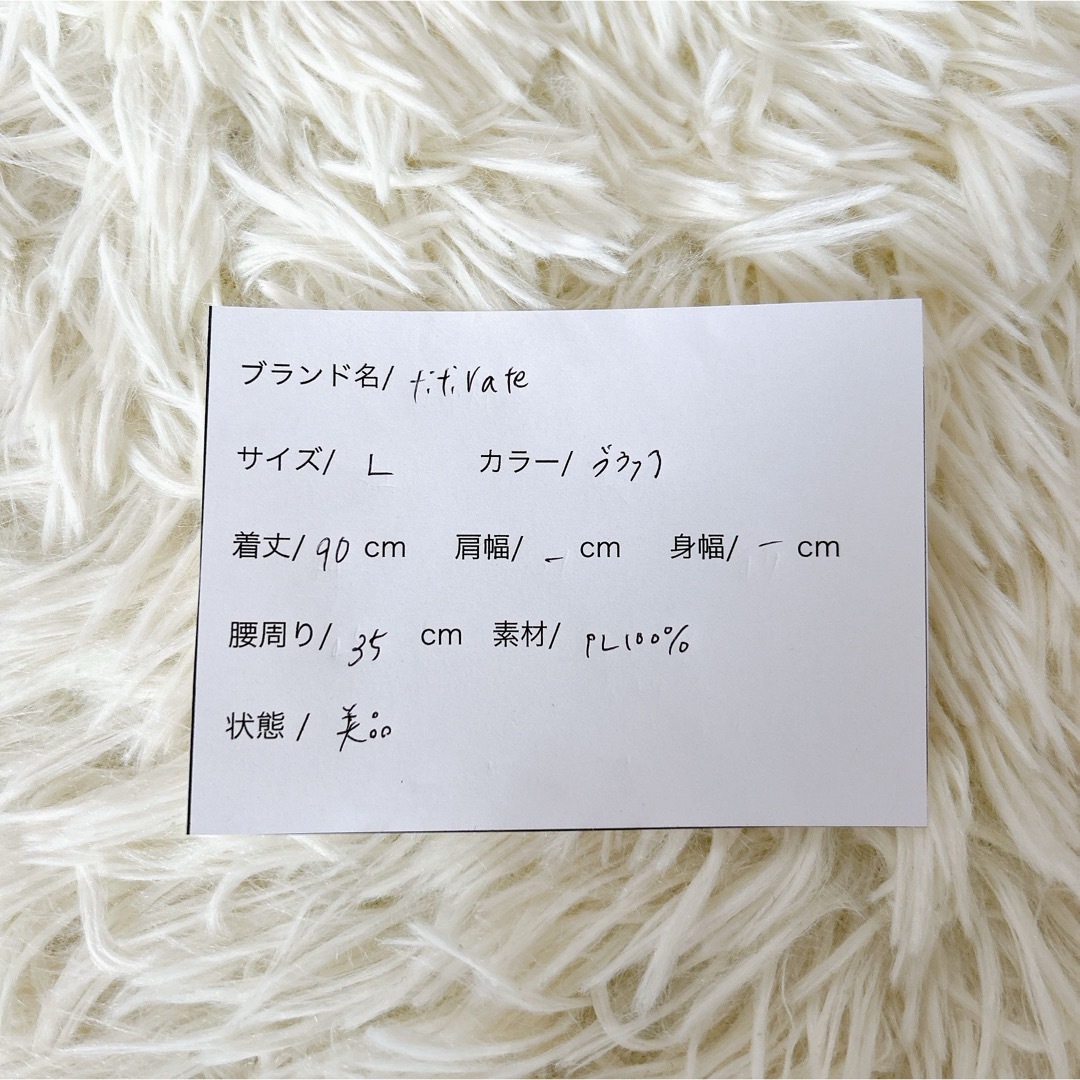 ブランド名/ titivate
サイズ/ L カラー/ ブラック
着丈/ 90 cm 肩幅/ - cm 身幅/ - cm
腰周り/ 35 cm 素材/ PL100%
状態 / 美品